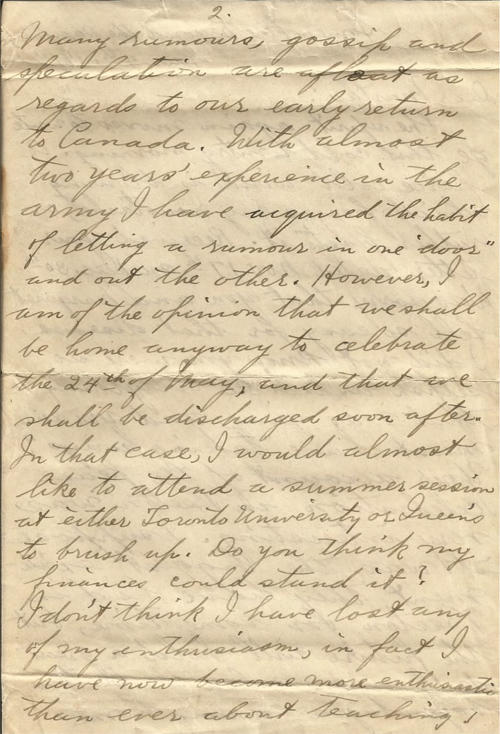 2.
Many rumours, gossip and
speculation are afloat as
regards to our early return
to Canada. With almost
two years' experience in the
army I have acquired the habit
of letting a rumour in one "door"
and out the other. However, I
am of the opinion that we shall
be home anyway to celebrate
the 24th of May, and that we
shall be discharged soon after.
In that case, I would almost
like to attend a summer session
at either Toronto University or Queen's
to brush up. Do you think my
finances could stand it?
I don't think I have lost any
of my enthusiasm, in fact I
have now become more enthusiastic
than ever about teaching!